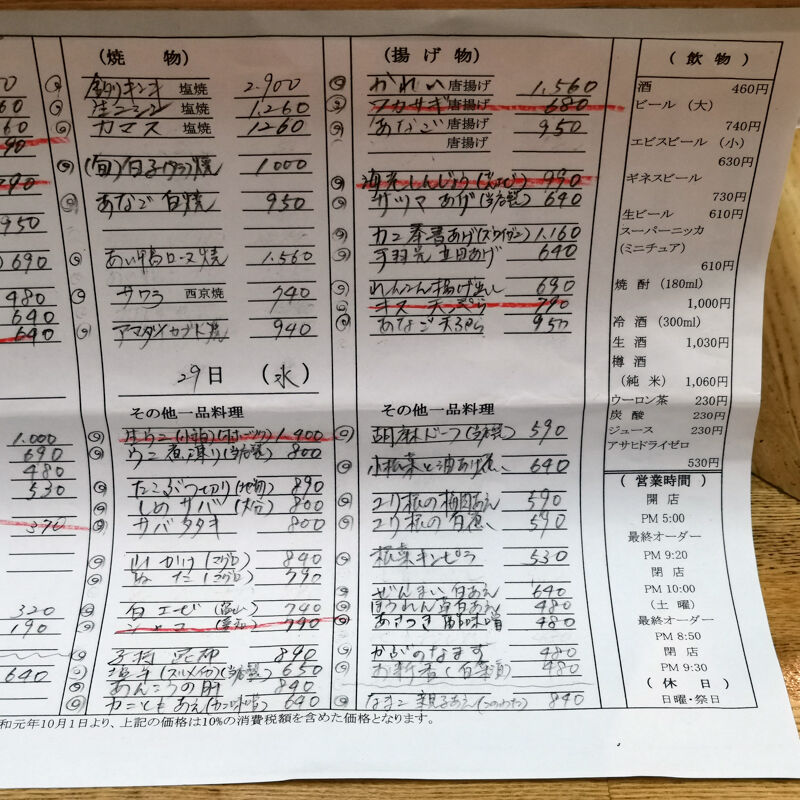 (焼 物)
釣りキンキ 塩焼 2.900
生ニシン 塩焼 1.260
カマス 塩焼 1260
(旬)白子(タラ)焼 1000
あなご白焼 950
あい鴨ロース焼 1.560
サワラ 西京焼 740
アマダイカブト焼 940
29日 (水)
その他一品料理
生ウニ 1.400
ウニ煮凍り(当店製) 800
たこぶつ切り(地物) 890
しめサバ(大分) 800
サバタタキ 800
山かけ(マグロ) 840
ぬた(マグロ) 790
白エビ(富山) 740
シャコ 790
子持昆布 890
塩辛(スルメイカ)(当店製) 650
あんこうの肝 840
カニともあえ(カニ味噌) 640
(揚 げ 物)
かれい 唐揚げ 1.560
ワカサギ 唐揚げ 680
あなご 唐揚げ 950
唐揚げ
海老しんじょう 990
サツマあげ(当店製) 640
カニ奉書あげ(ズワイガニ) 1.160
手羽先立田あげ 640
れんこん揚げ出し 690
キス天ぷら 790
あなご天ぷら 950
その他一品料理
胡麻ドーフ(当店製) 590
小松菜と油あげ煮 640
ユリ根の梅肉あえ 590
ユリ根の旨煮 590
根菜キンピラ 530
ぜんまい白あえ 640
ほうれん草白あえ 480
あさつき酢味噌 480
かぶのなます 480
お新香(白菜漬) 480
なまこ親子あえ(このわた) 840
690
950
690
480
640
640
1.000
690
480
530
370
320
190
640
(飲 物)
酒 460円
ビール (大)
740円
エビスビール (小)
630円
ギネスビール
730円
生ビール 610円
スーパーニッカ
(ミニチュア)
610円
焼 酎 (180ml)
1,000円
冷 酒 (300ml)
生 酒 1,030円
樽 酒
(純 米) 1,060円
ウーロン茶 230円
炭 酸 230円
ジュース 230円
アサヒドライゼロ
530円
(営業時間)
開 店
PM 5:00
最終オーダー
PM 9:20
閉 店
PM 10:00
(土 曜)
最終オーダー
PM 8:50
閉 店
PM 9:30
(休 日)
日曜・祭日
和元年10月1日より、上記の価格は10%の消費税額を含めた価格となります。